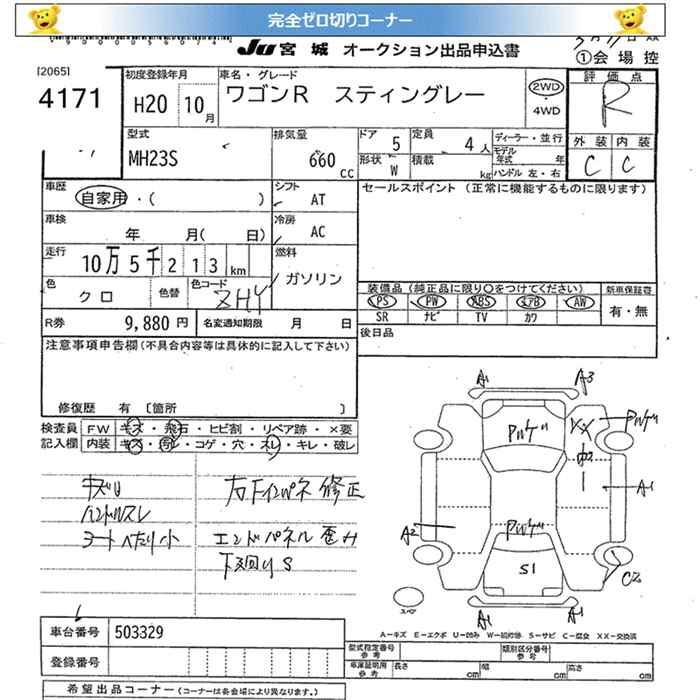 完全ゼロ切りコーナー
JU宮城 オークション出品申込書
①会場控
[2065]
4171
初度登録年月
H20 10月
車名・グレード
ワゴンR スティングレー
2WD
4WD
評価点
R
型式
MH23S
排気量
660cc
ドア 5
形状 W
定員 4人
積載 kg
ディーラー・並行
モデル年式 年
ハンドル 左・右
外装 内装
C C
車歴
自家用・( )
シフト AT
セールスポイント (正常に機能するものに限ります)
車検
年 月( 日)
冷房 AC
走行
10万5千213km
燃料 ガソリン
色 クロ
色替
色コード ZHY
装備品 (純正品に限り○をつけてください)
新車保証書
PS PW ABS エアB AW
有・無
SR ナビ TV カワ
R券 9,880円
名変通知期限 月 日
後日品
注意事項申告欄(不具合内容等は具体的に記入して下さい)
修復歴 有 〔箇所 〕
検査員記入欄
FW キズ・飛石・ヒビ割・リペア跡・×要
内装 キズ・汚レ・コゲ・穴・スレ・キレ・破レ
ハンドルスレ
シートヘたり小
右下インパネ 修正
エンドパネル 歪み
下廻りS
A1 A3
XX
A1
A2
S1
A1 A1
スペア
A-キズ E-エクボ U-凹み W-補修跡 S-サビ C-腐食 XX-交換済
車台番号 503329
登録番号
型式指定番号 参考
類別区分番号 参考
車庫証明用 参考 長さ cm 幅 cm 高さ cm
希望出品コーナー (コーナーは各会場により異なります。)